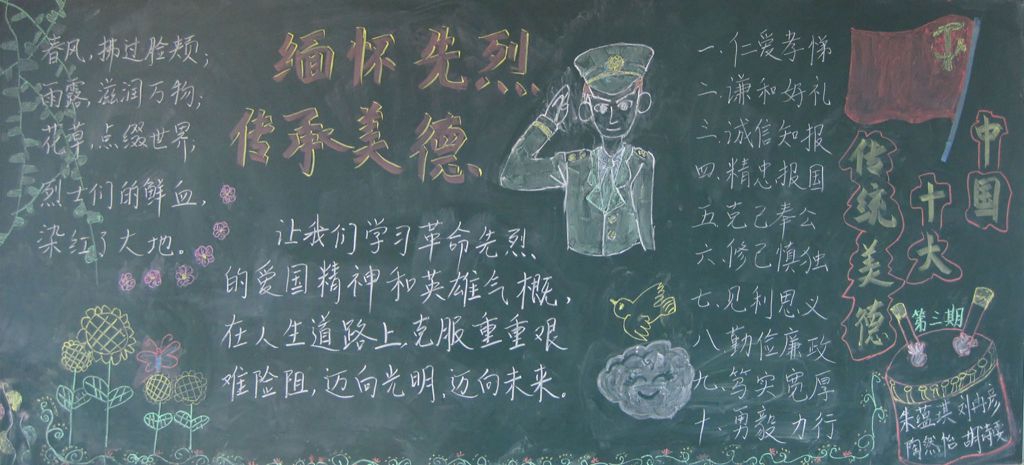 缅怀先烈
传承美德
春风，拂过脸颊；
雨露，滋润万物；
花草，点缀世界，
烈士们的鲜血，
染红了大地。
让我们学习革命先烈
的爱国精神和英雄气概，
在人生道路上，克服重重艰
难险阻，迈向光明，迈向未来。
一、仁爱孝悌
二、谦和好礼
三、诚信知报
四、精忠报国
五、克己奉公
六、修己慎独
七、见利思义
八、勤俭廉政
九、笃实宽厚
十、勇毅力行
中国
十大
传统美德
第三期
朱蕴淇
陶然怡